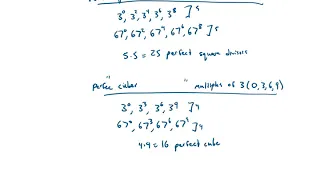 3⁰, 3², 3⁴, 3⁶, 3⁸ ] 5
67⁰, 67², 67⁴, 67⁶, 67⁸ ] 5
5·5 = 25 perfect square divisors
"perfec cubes " multiples of 3 (0, 3, 6, 9)
3⁰, 3³, 3⁶, 3⁹ ] 4
67⁰, 67³, 67⁶, 67⁹ ] 4
4·4 = 16 perfect cube